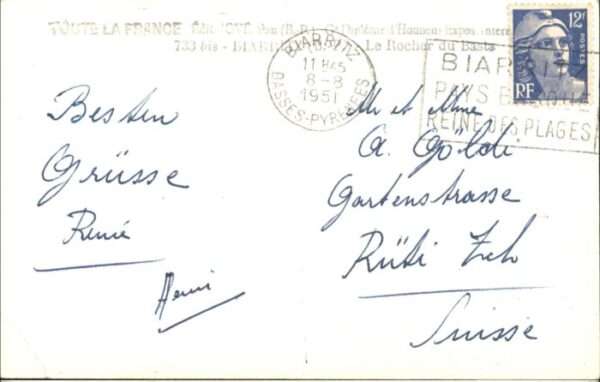 TOUTE LA FRANCE
733 bis - BIARRITZ Le Rocher du Basta
BIARRITZ
11 H45
8-8
1951
BASSES-PYRÉNÉES
12F
POSTES
RF
BIARRITZ
PAYS BASQUE
REINE DES PLAGES
Besten
Grüsse
René
Henri
Mr et Mme
A. Göldi
Gartenstrasse
Rüti Zch
Suisse